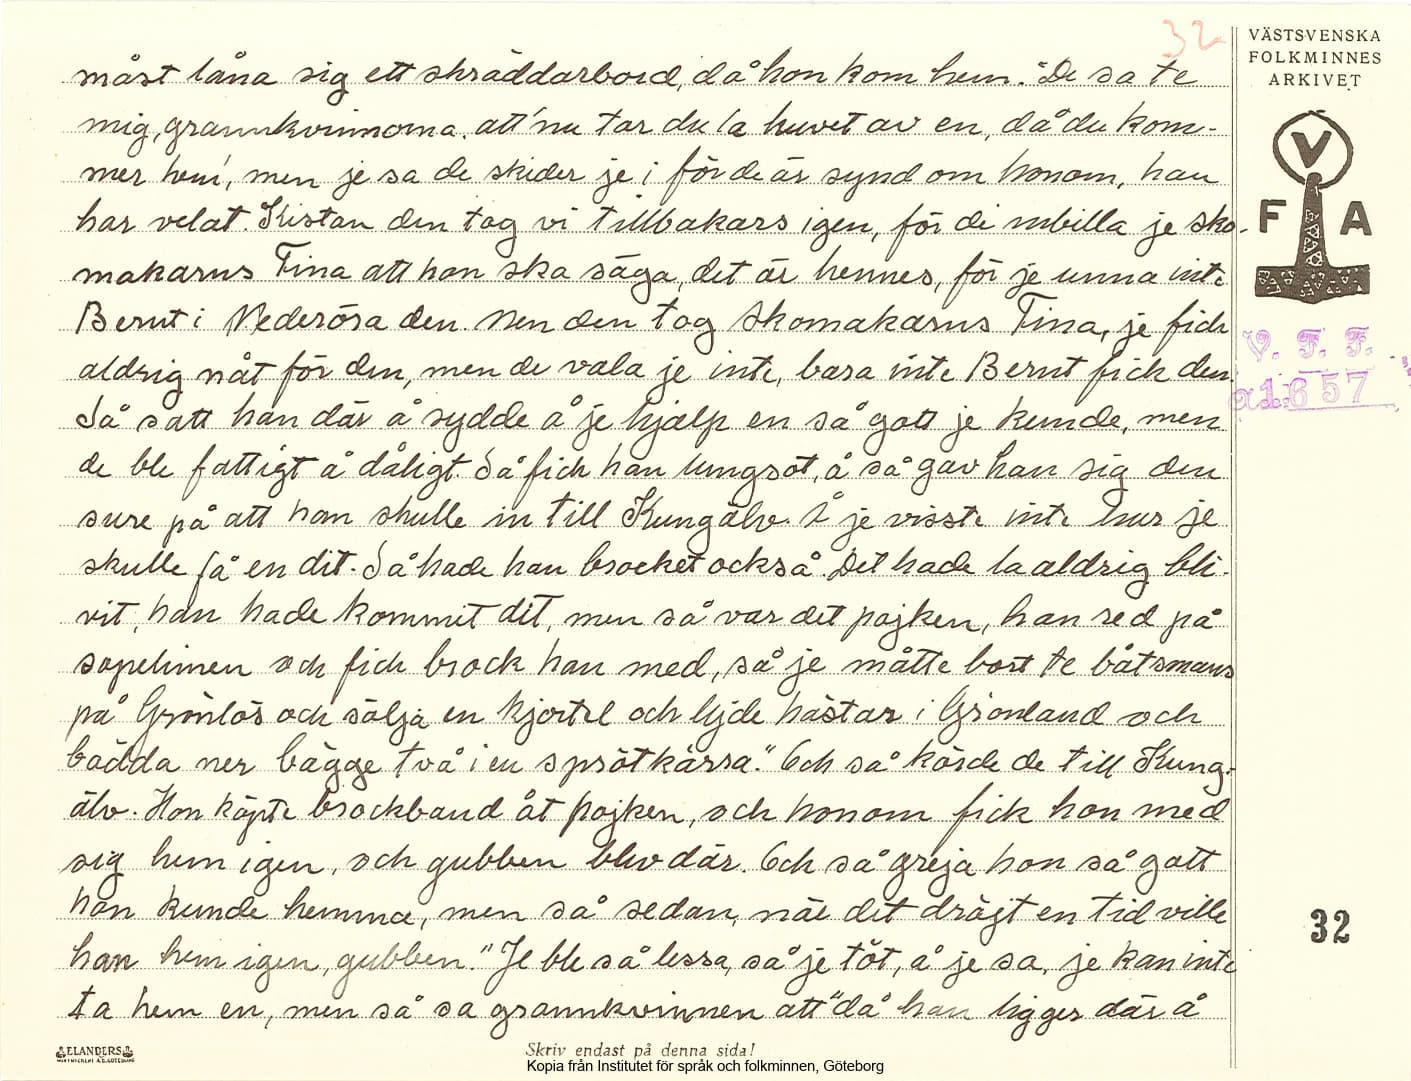 32
VÄSTSVENSKA
FOLKMINNES
ARKIVET
V
F A
V. F. F.
a1657
måst låna sig ett skräddarbord, då hon kom hem. "De sa te
mig, grannkvinnorna, att 'nu tar du la huvet av en, då du kom-
mer hem', men je sa de skider je i för de är synd om honom, han
har velat. Kistan den tog vi tillbakars igen, för di inbilla je sko-
makarns Fina att hon ska säga, det är hennes, för je unna inte
Bernt i Nederöra den. Men den tog skomakarns Fina, je fick
aldrig nåt för den, men de vala je inte, bara inte Bernt fick den.
Så satt han där å sydde å je hjälp en så gott je kunde, men
de ble fattigt å dåligt. Så fick han lungsot, å så gav han sig den
sure på att han skulle in till Kungälv. Å je visste inte hur je
skulle få en dit. Så hade han brocket också. Det hade la aldrig bli-
vit, han hade kommit dit, men så var det pojken, han red på
sopelimen och fick brock han med, så je måtte bort te båtsmans
på Grönlös och sälja en kjortel och lejde hästar i Grönland och
bädda ner bägge två i en sprötkärra." Och så körde de till Kung-
älv. Hon köpte brockband åt pojken, och honom fick hon med
sig hem igen, och gubben blev där. Och så greja hon så gott
hon kunde hemma, men så sedan, när det drögt en tid ville
han hem igen, gubben. "Je ble så lessa, så je töt, å je sa, je kan inte
ta hem en, men så sa grannkvinnen att "då han ligger där å
32
ELANDERS
Skriv endast på denna sida!
Kopia från Institutet för språk och folkminnen, Göteborg